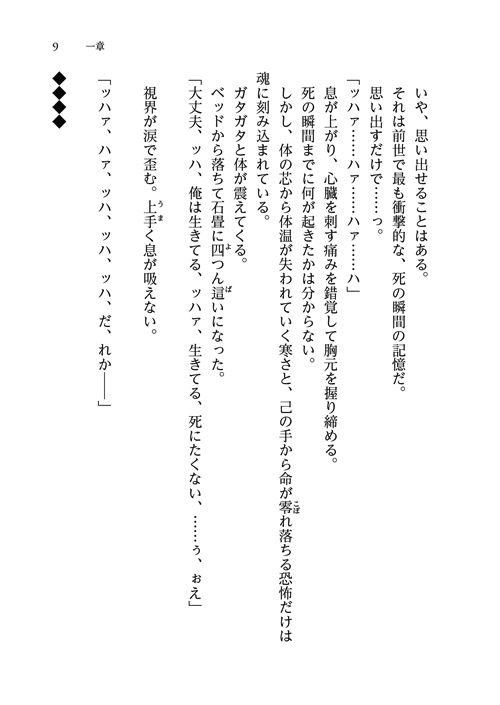 9　一章
いや、思い出せることはある。
それは前世で最も衝撃的な、死の瞬間の記憶だ。
思い出すだけで……っ。
「ッハァ……ハァ……ハァ……ハ」
息が上がり、心臓を刺す痛みを錯覚して胸元を握り締める。
死の瞬間までに何が起きたかは分からない。
しかし、体の芯から体温が失われていく寒さと、己の手から命が零れ落ちる恐怖だけは
魂に刻み込まれている。
ガタガタと体が震えてくる。
ベッドから落ちて石畳に四つん這いになった。
「大丈夫、ッハ、俺は生きてる、ッハァ、生きてる、死にたくない、……ぅ、ぉえ」
視界が涙で歪む。上手く息が吸えない。
「ッハァ、ハァ、ッハ、ッハ、ッハ、だ、れか――」
◆◆◆◆